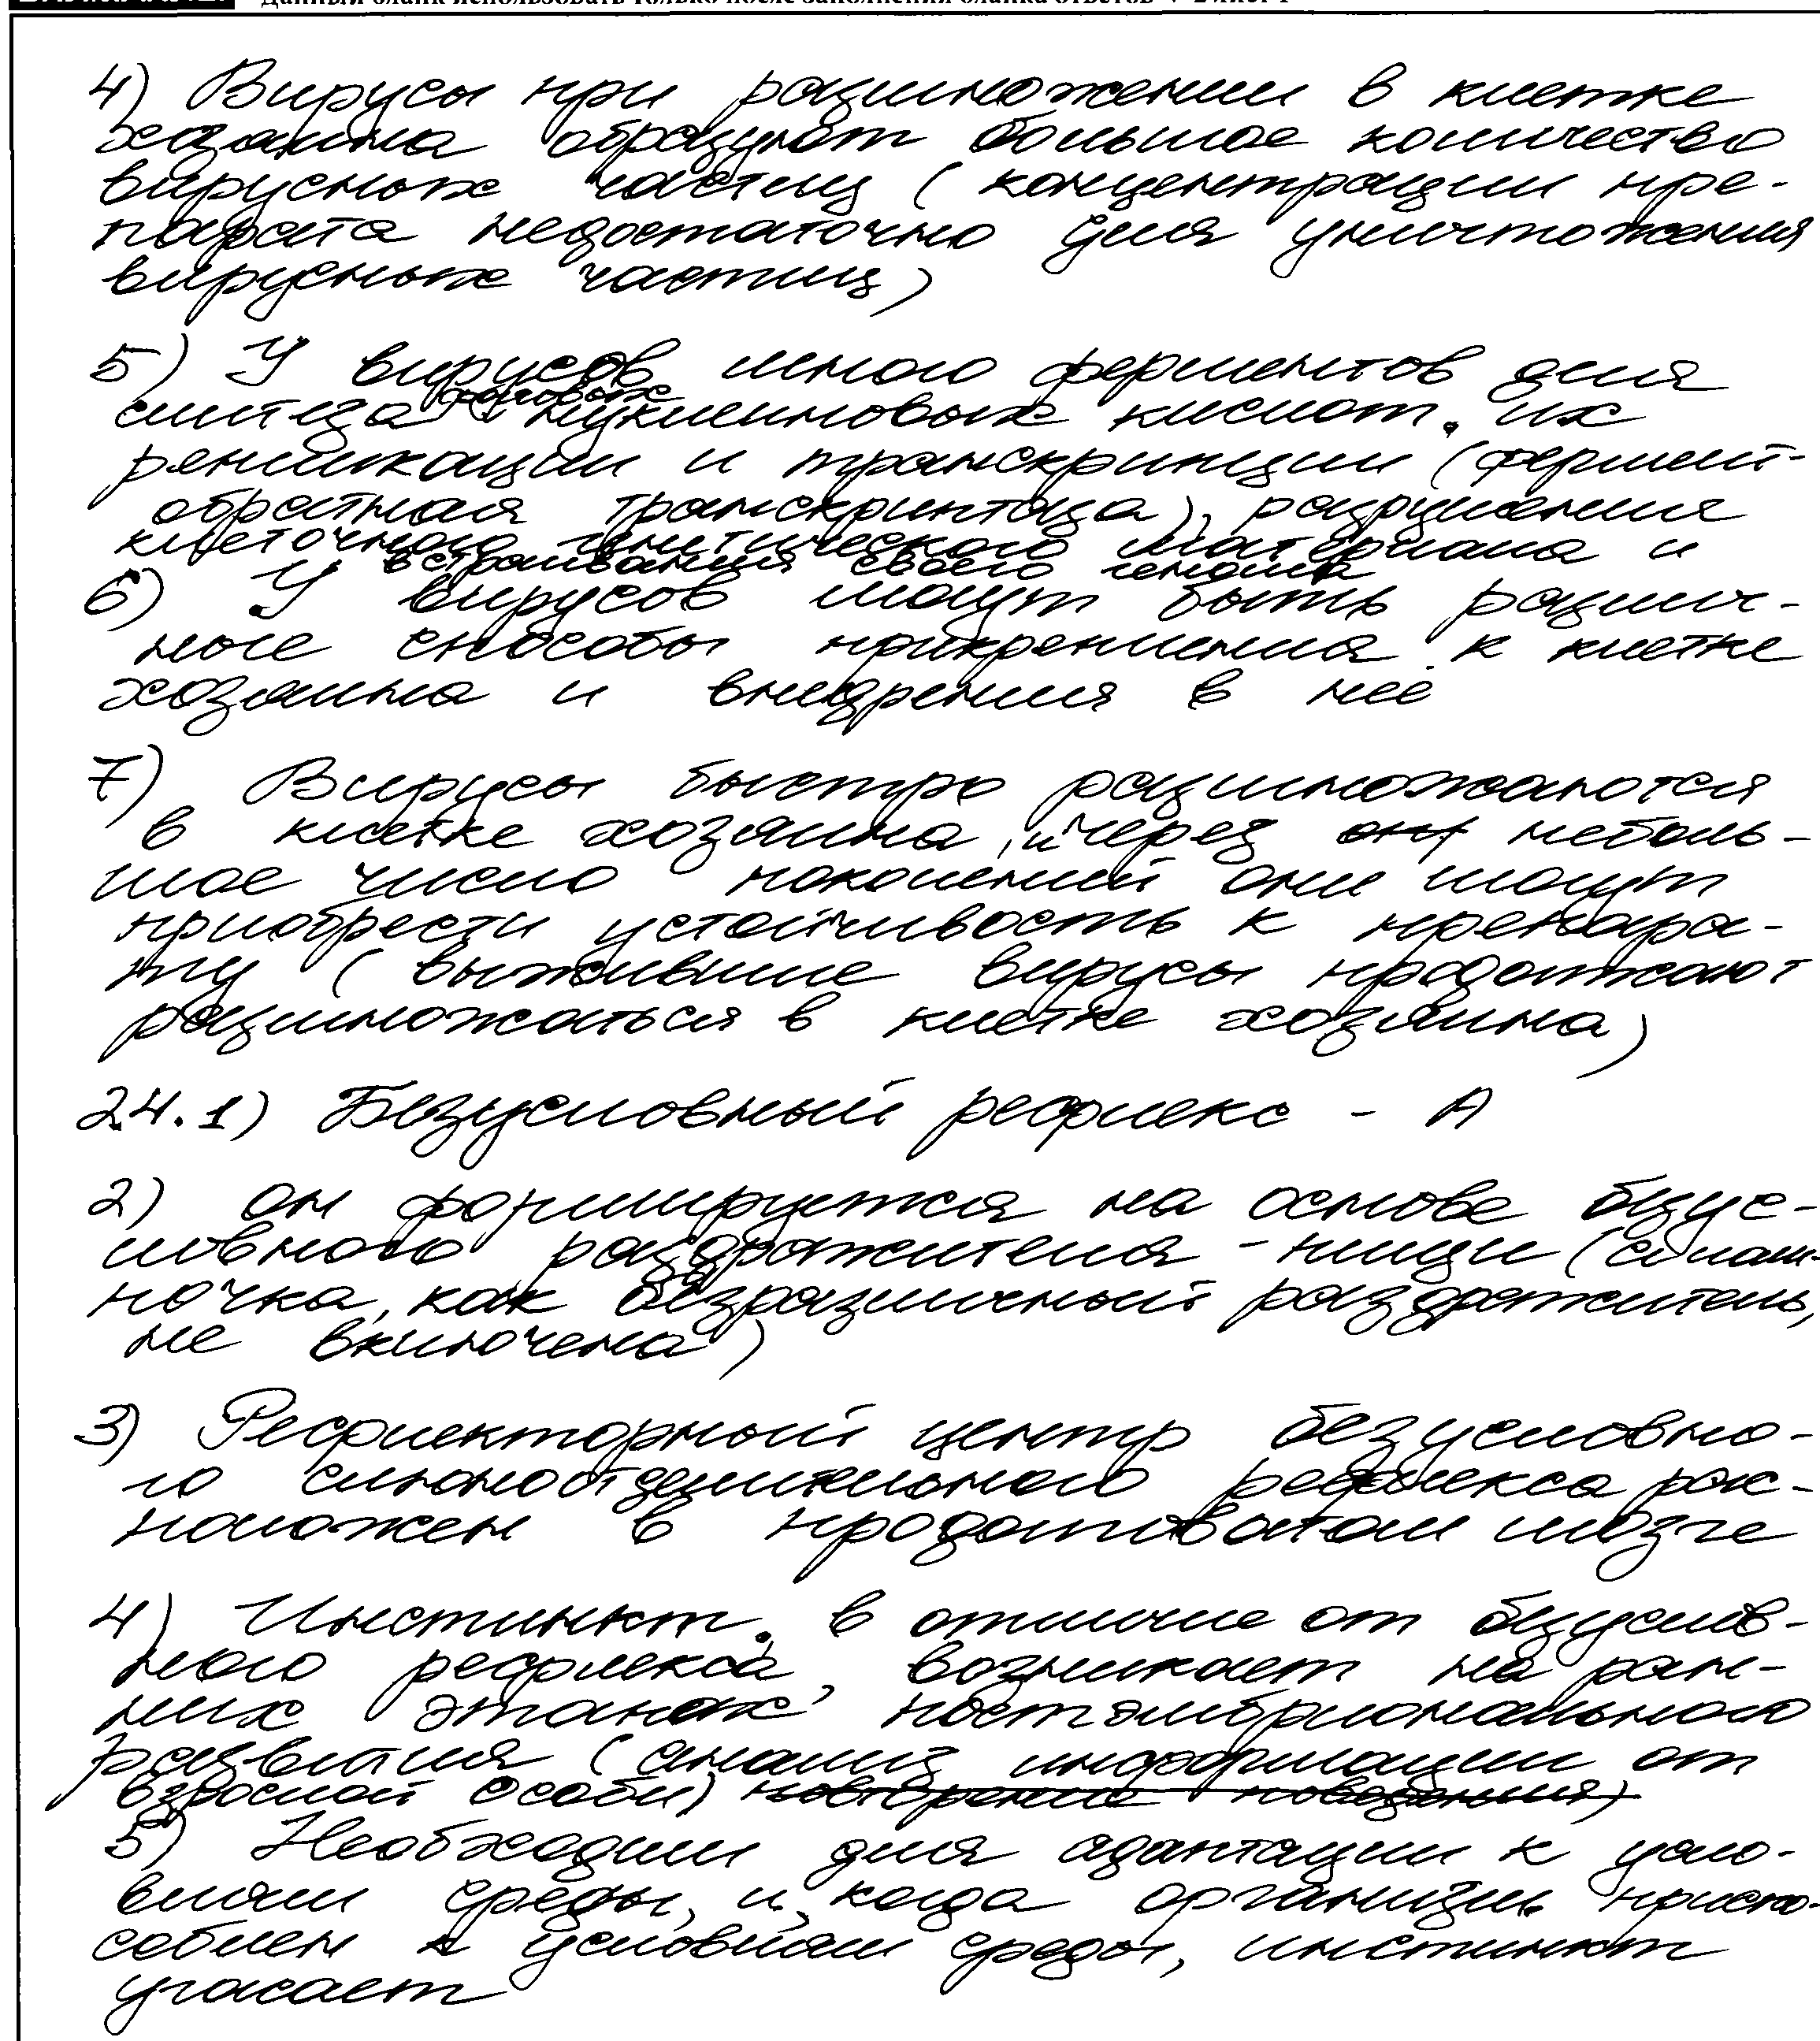 Данный бланк использовать только после заполнения бланка ответов
4) Вирусы при размножении в клетке
хозяина образуют большое количество
вирусных частиц (концентрации пре-
парата недостаточно для уничтожения
вирусных частиц)
5) У вирусов много ферментов для
синтеза нуклеиновых кислот, их
репликации и транскрипции (фермент-
обратная транскриптаза), разрушения
клеточного генетического материала и
встраивания своего генома
6) У вирусов могут быть различ-
ные способы прикрепления к клетке
хозяина и внедрения в нее
7) Вирусы быстро размножаются
в клетке хозяина, и через неболь-
шое число поколений они могут
приобрести устойчивость к препара-
ту (выжившие вирусы продолжают
размножаться в клетке хозяина)
24.1) Безусловный рефлекс - А
2) он формируется на основе безус-
ловного раздражителя - пищи (а лам-
почка, как безразличный раздражитель,
не включена)
3) Рефлекторный центр безусловно-
го слюноотделительного рефлекса рас-
положен в продолговатом мозге
4) Инстинкт, в отличие от безуслов-
ного рефлекса, возникает на ран-
них этапах постэмбрионального
развития (анализ информации от
взрослой особи) повторение поведения)
5) Необходим для адаптации к усло-
виям среды, и, когда организм приспо-
соблен к условиям среды, инстинкт
угасает